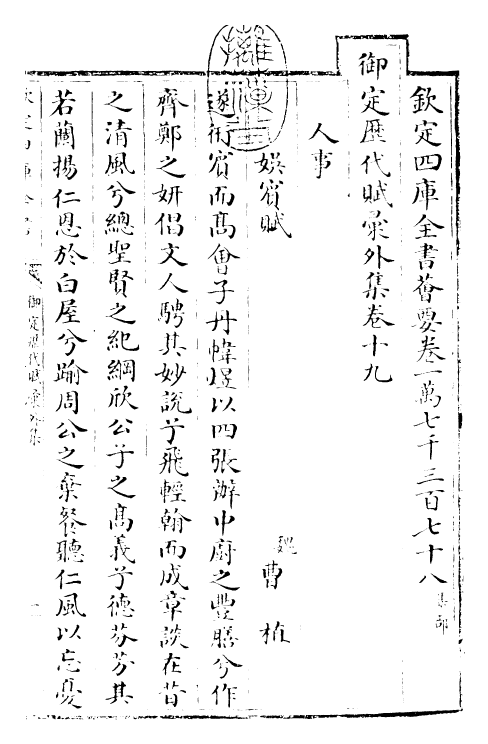 欽定四庫全書薈要卷一萬七千三百七十八 集部
御定歷代賦彙外集卷十九
人事
娛賓賦 魏 曹植
遂衎賓而高會兮丹幃煜以四張辦中廚之豐膳兮作
齊鄭之妍倡文人騁其妙說兮飛輕翰而成章談在昔
之清風兮總聖賢之紀綱欣公子之高義兮德芬芳其
若蘭揚仁恩於白屋兮踰周公之棄餐聽仁風以忘憂
欽定四庫全書
御定歷代賦彙外集